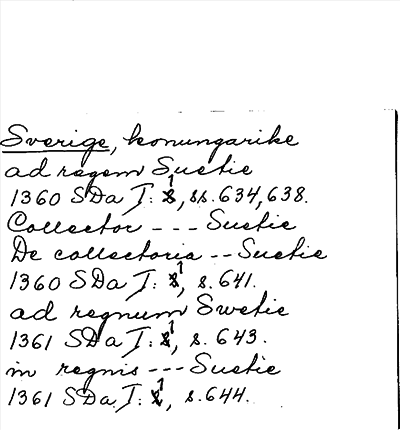 Sverige, konungarike
ad regem Suetie
1360 SDa I: 1, ss. 634, 638.
Collector --- Suetie
De collectoria -- Suetie
1360 SDa I: 1, s. 641.
ad regnum Swetie
1361 SDa I: 1, s. 643.
in regnis --- Suetie
1361 SDa I: 1, s. 644.